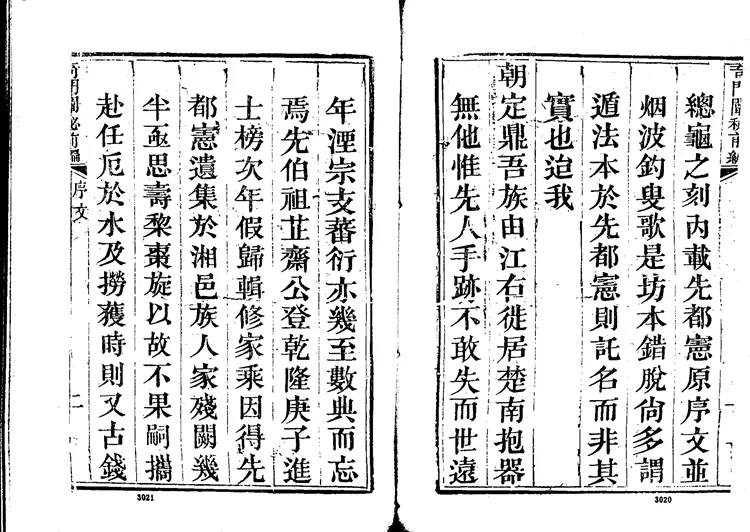 奇門闡秘前編
總龜之刻內載先都憲原序文並
烟波釣叟歌是坊本錯脫尙多謂
遁法本於先都憲則託名而非其
實也迨我
朝定鼎吾族由江右徙居楚南抱器
無他惟先人手跡不敢失而世遠
3020
年湮宗支蕃衍亦幾至數典而忘
焉先伯祖芷齋公登乾隆庚子進
士榜次年假歸輯修家乘因得先
都憲遺集於湘邑族人家殘闕幾
半亟思壽黎棗旋以故不果嗣攜
赴任厄於水及撈獲時則又古錢
奇門闡秘前編
序文
二
3021